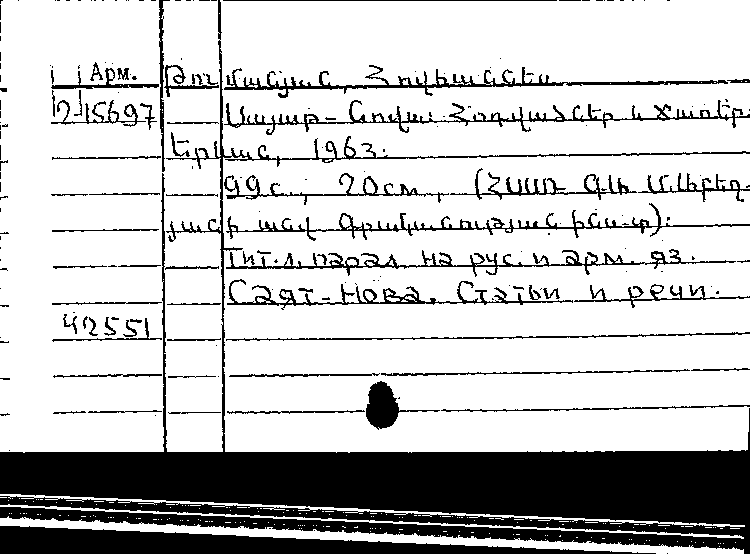 Арм. Թումանյան, Հովհաննես
2-15697 Սայաթ-Նովա: Հոդվածներ և ճառեր.
Երևան, 1963.
99с., 20см, (ՀՍՍՌ ԳԱ Մ. Աբեղ-
յանի անվ. գրականության ինստ.):
Тит.л. парал. на рус. и арм. яз.
Саят-Нова. Статьи и речи.
42551